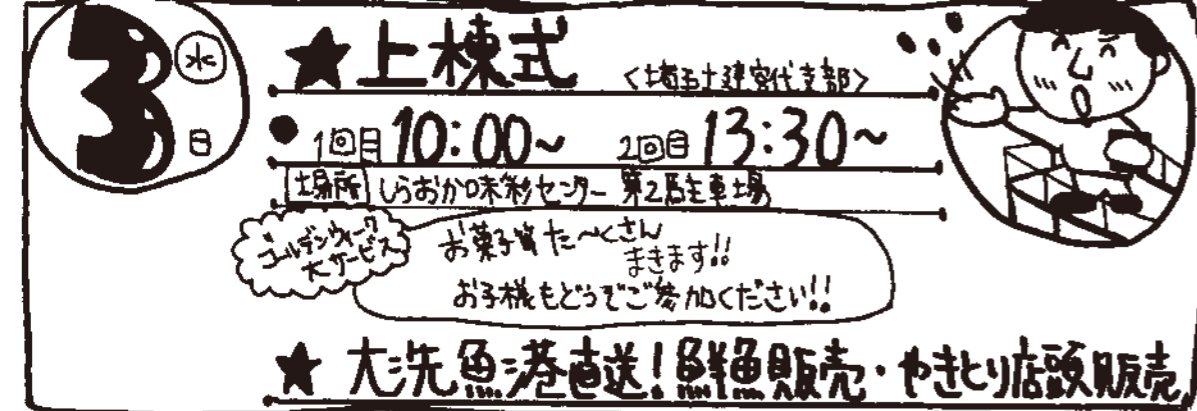 3日(水)
★上棟式 <埼玉土建宮代支部>
●1回目 10:00~ 2回目 13:30~
場所 しらおか味彩センター 第2駐車場
ゴールデンウィーク
大サービス
お菓子等た~くさん
まきます!!
お子様もどうぞご参加ください!!
★大洗魚港直送!鮮魚販売・やきとり店頭販売